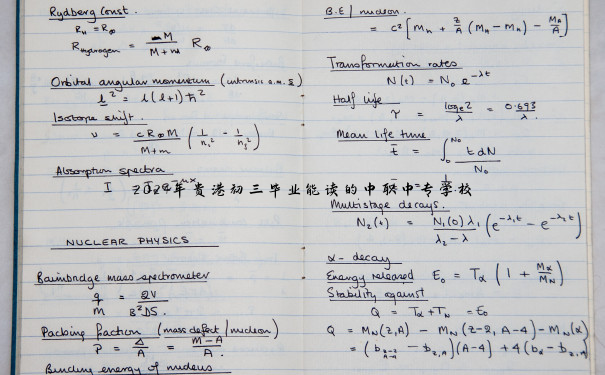 Rydberg Const.
R_H = R_∞
R_Hydrogen = M / (M + m) R_∞
Orbital angular momentum (intrinsic a.m. s)
l² = l(l+1) ħ²
Isotope shift.
ν = c R_∞ M / (M + m) (1/n₁² - 1/n₂²)
Absorption spectra
I
2024年贵港初三毕业能读的中职中专学校
NUCLEAR PHYSICS
Bainbridge mass spectrometer
q / m = 2V / B²DS.
Packing fraction (mass defect / nucleon)
P = Δ / A = M - A / A.
Binding energy of nucleus
B.E / nucleon.
= c² [M_n + Z/A (M_H - M_n) - M_A/A]
Transformation rates
N(t) = N₀ e^-λt
Half life
τ = log_e 2 / λ = 0.693 / λ.
Mean life time
t̄ = ∫₀^N₀ t dN / N₀
Multistage decays.
N₂(t) = N₁(0) λ₁ / (λ₂ - λ) (e^-λ₁t - e^-λ₂t)
α - decay
Energy released E₀ = T_α (1 + M_α/M_N)
Stability against
Q = T_α + T_N = E₀
Q = M_N(Z,A) - M_N(Z-2, A-4) - M_N(α)